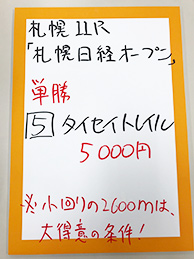 札幌11R
「札幌日経オープン」
単勝
5 タイセイトレイル
5000円
※小回りの2600mは、
大得意の条件!